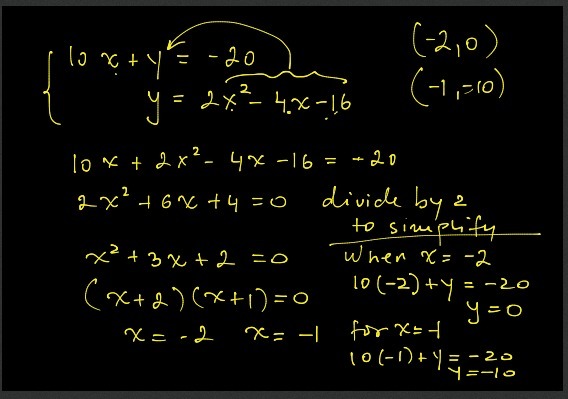 10x + y = -20
y = 2x² - 4x - 16
(-2, 0)
(-1, -10)
10x + 2x² - 4x - 16 = -20
2x² + 6x + 4 = 0 divide by 2
to simplify
x² + 3x + 2 = 0
(x+2)(x+1) = 0
x = -2 x = -1
When x = -2
10(-2) + y = -20
y = 0
for x = -1
10(-1) + y = -20
y = -10